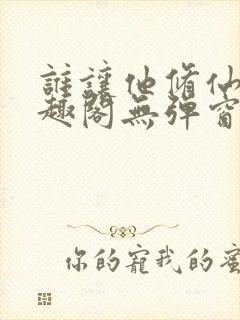 誰讓他脩仙
趣閣無彈窗
你的寵我的蜜